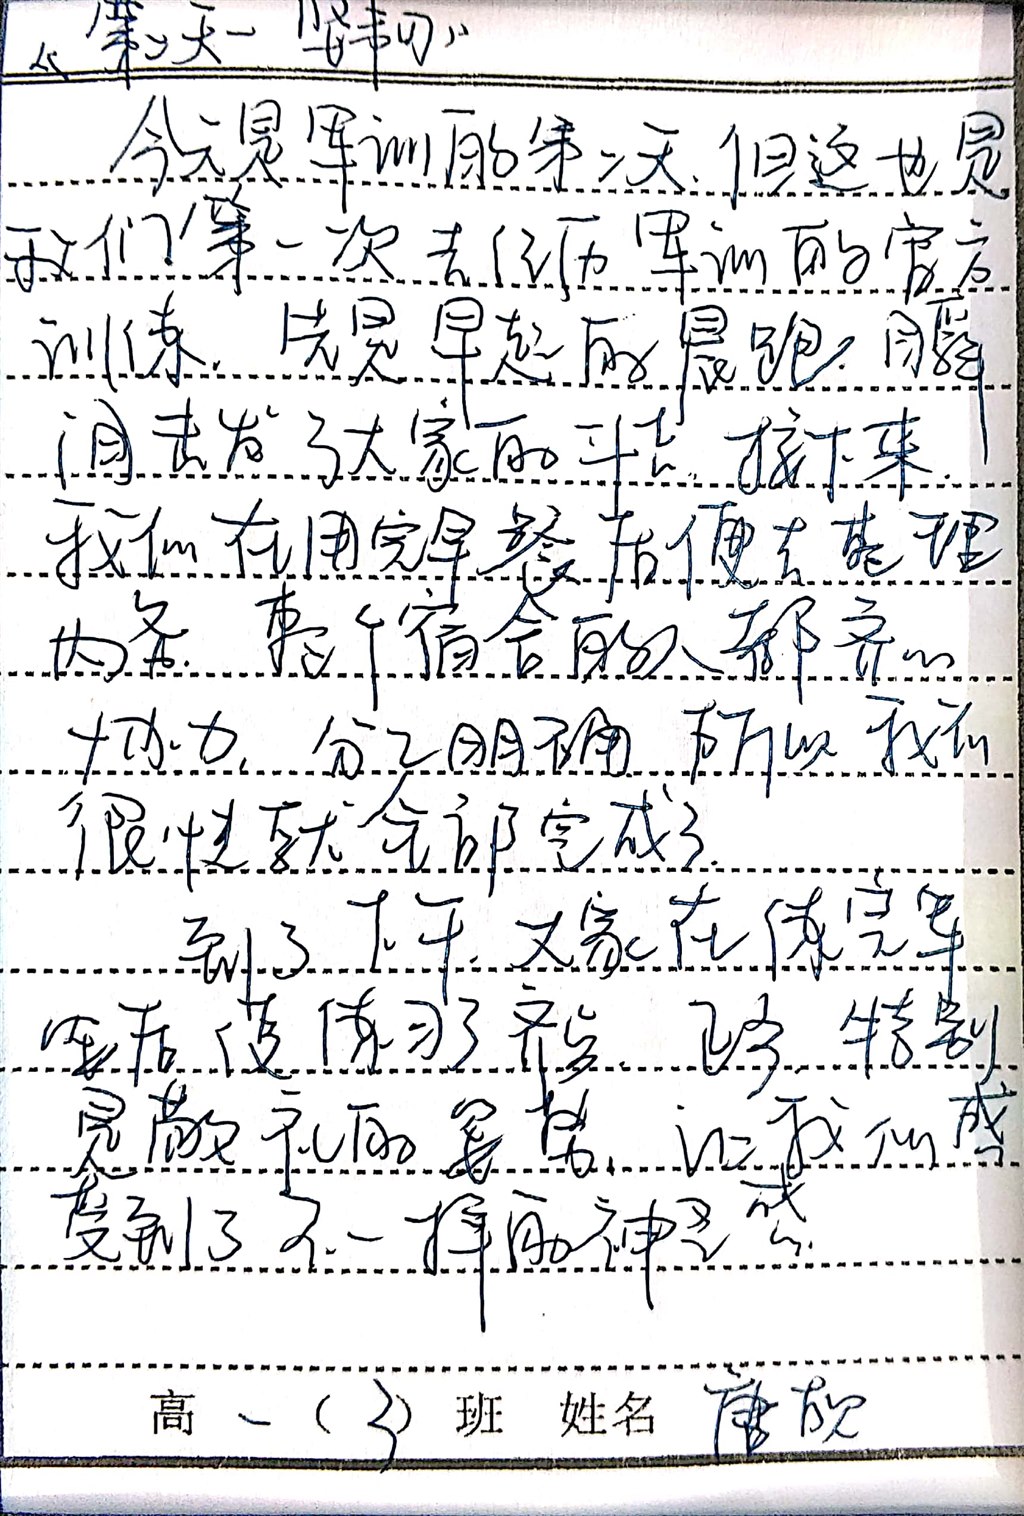 《第二天—坚韧》
今天是军训的第二天,但这也是
我们第一次去经历军训的官方
训练,先是早起的晨跑,瞬
间击发了大家的斗志,接下来,
我们在用完早餐后便去整理
内务,整个宿舍的人都齐心
协力,分工明确,所以我们
很快就全部完成了.
到了下午,大家在练完军
姿后便练习了齐步,正步,特别
是敬礼的姿势,让我们感
受到了不一样的神圣感.
高一(3)班 姓名 唐